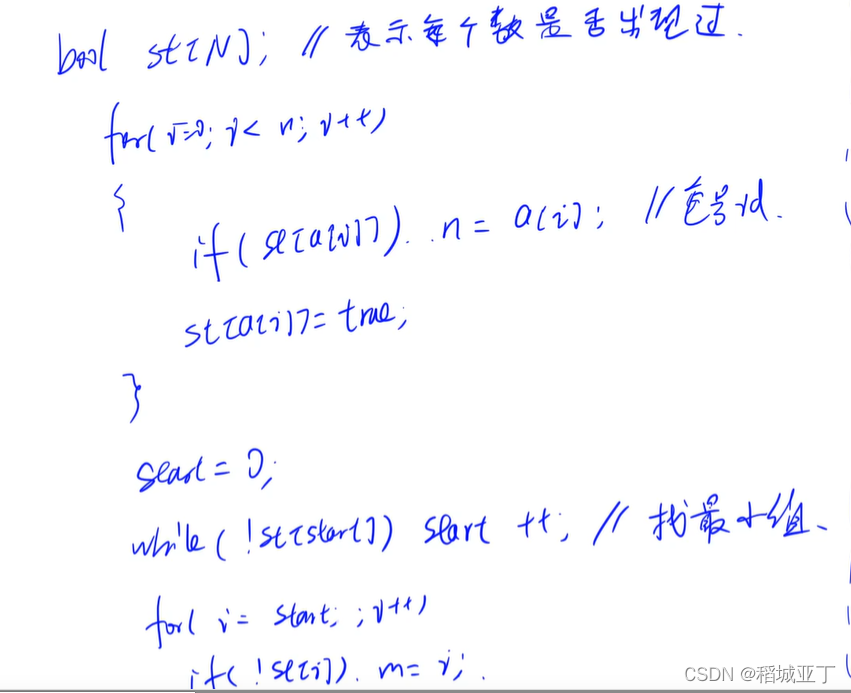 bool st[N]; // 表示每个数是否出现过.
for(i=0; i< n; i++)
{
if( st[a[i]]). n = a[i]; // 重号id.
st[a[i]]= true;
}
start = 0;
while( !st[start]) start ++; // 找最小值、
for( i= start; ;i++)
if( !st[i]). m= i;.
CSDN @稻城亚丁